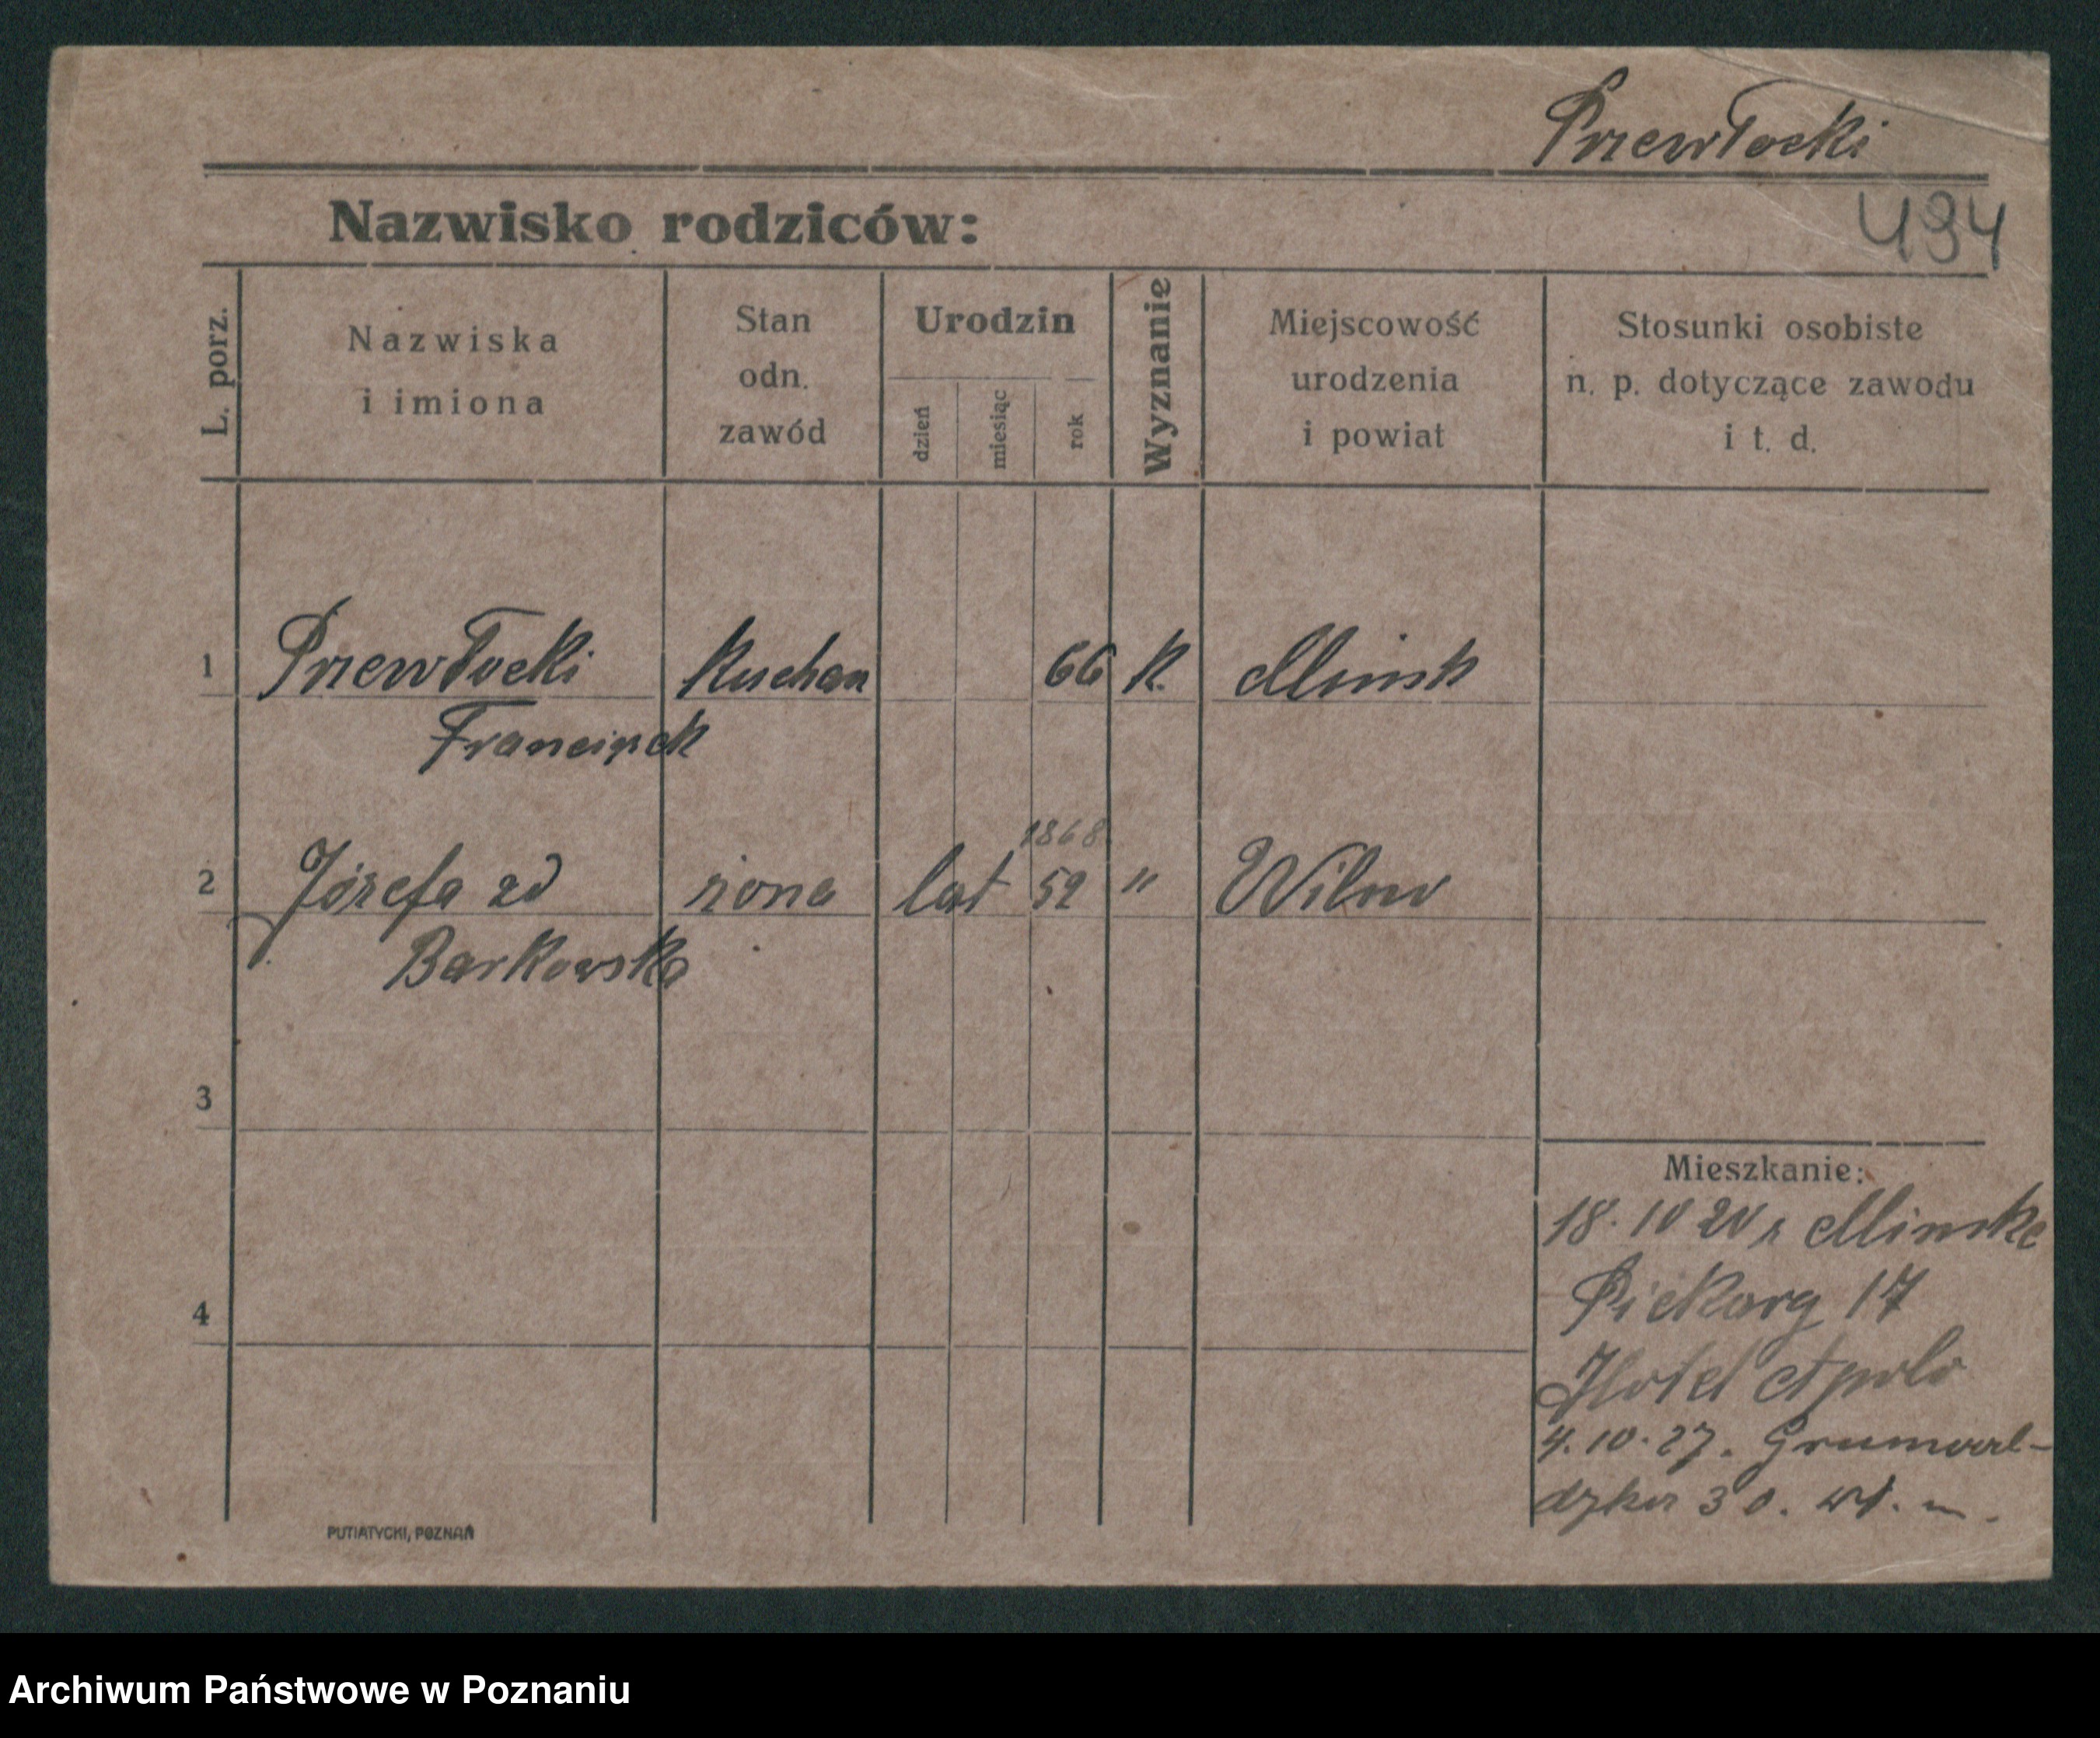 Przewłocki
494
Nazwisko rodziców:
L. porz.
Nazwiska
i imiona
Stan
odn.
zawód
Urodzin
dzień
miesiąc
rok
Wyznanie
Miejscowość
urodzenia
i powiat
Stosunki osobiste
n. p. dotyczące zawodu
i t. d.
1 Przewłocki Kuchar 66 K. Minsk
Franciszek
1868
2 Józefa zd żona lat 52 " Wilno
Barkowska
3
Mieszkanie:
18. 10 20 z Minska
4
Piekary 17
Hotel Apolo
4. 10. 27. Grunwal-
dzka 30.
PUTIATYCKI, POZNAŃ
Archiwum Państwowe w Poznaniu